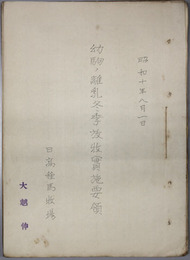 昭和十年八月一日
幼駒ノ離乳冬季放牧實施要領
日高種馬牧場
大越伸